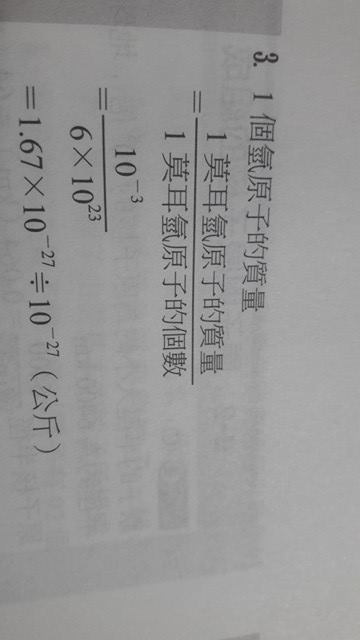 3. 1 個氫原子的質量
= 1 莫耳氫原子的質量 / 1 莫耳氫原子的個數
= 10⁻³ / 6×10²³
=1.67×10⁻²⁷÷10⁻²⁷(公斤)